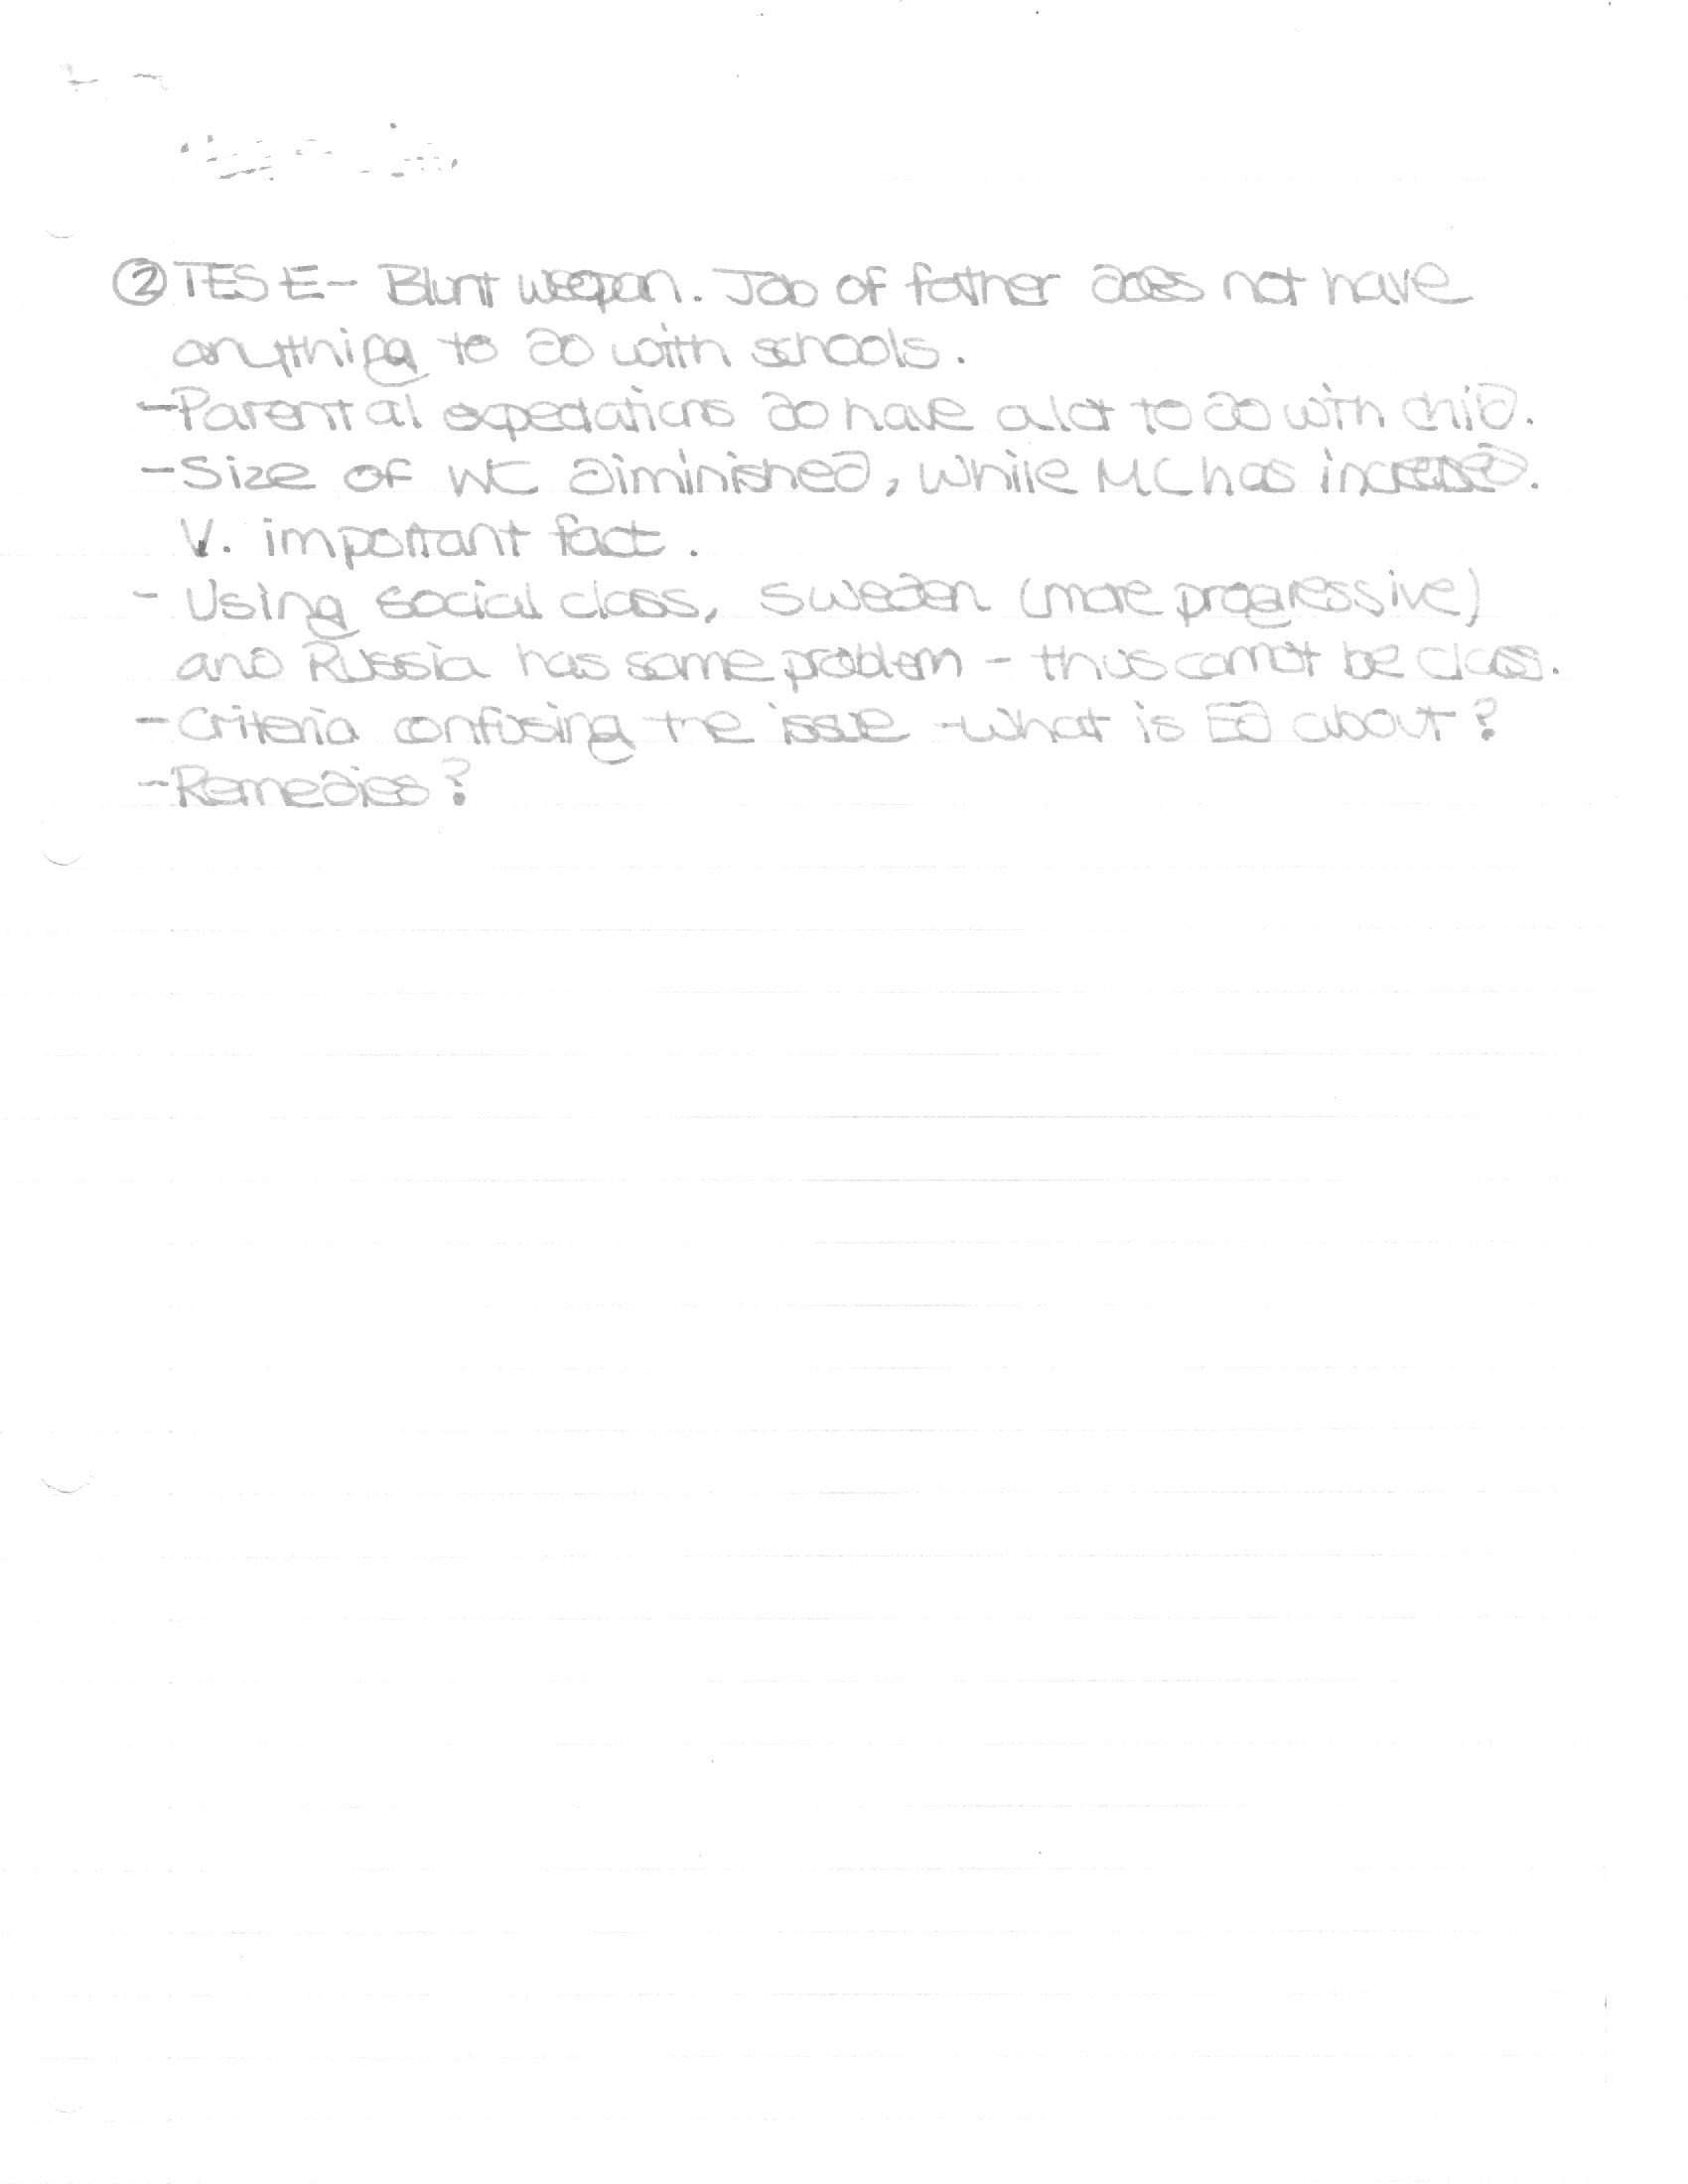 ② TES E- Blunt weapon. Job of father does not have
anything to do with schools.
-Parental expectations do have a lot to do with child.
-Size of WC diminished, while MC has increased.
V. important fact.
- Using social class, Sweden (more progressive)
and Russia has same problem - thus cannot be class.
-Criteria confusing the issue -what is Ed about?
-Remedies?